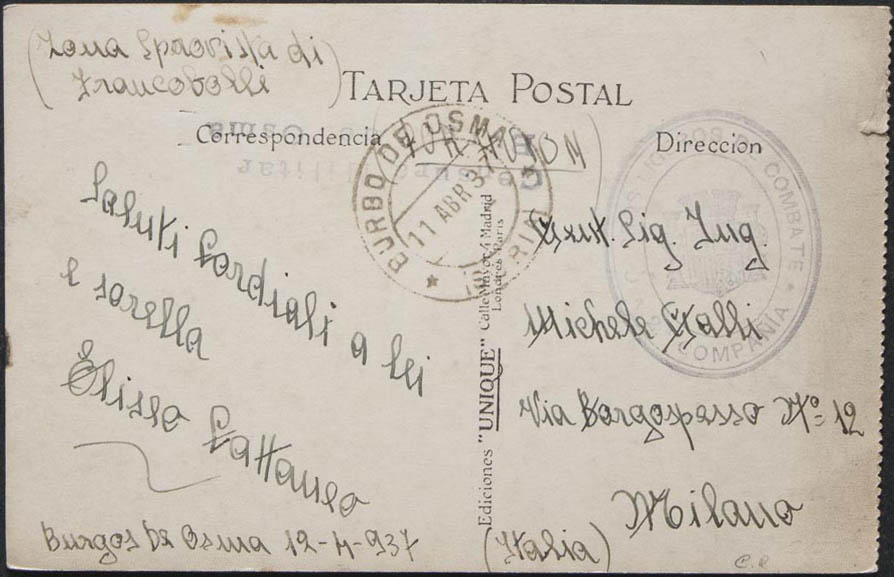 (Zona Sprovista di
Francobolli)
TARJETA POSTAL
Correspondencia
Dirección
BURBO DE OSMA
11 ABR 37
Censura Militar
COMBATE
COMPAÑIA
Saluti Cordiali a lei
e sorella
Eliseo Cattaneo
Burgos De Osma 12-4-937
Ediciones "UNIQUE" Calle Mayor 4 Madrid
Londres Paris
Sig. Ing.
Michele Galli
Via Borgospesso Nº 12
Milano
(Italia)